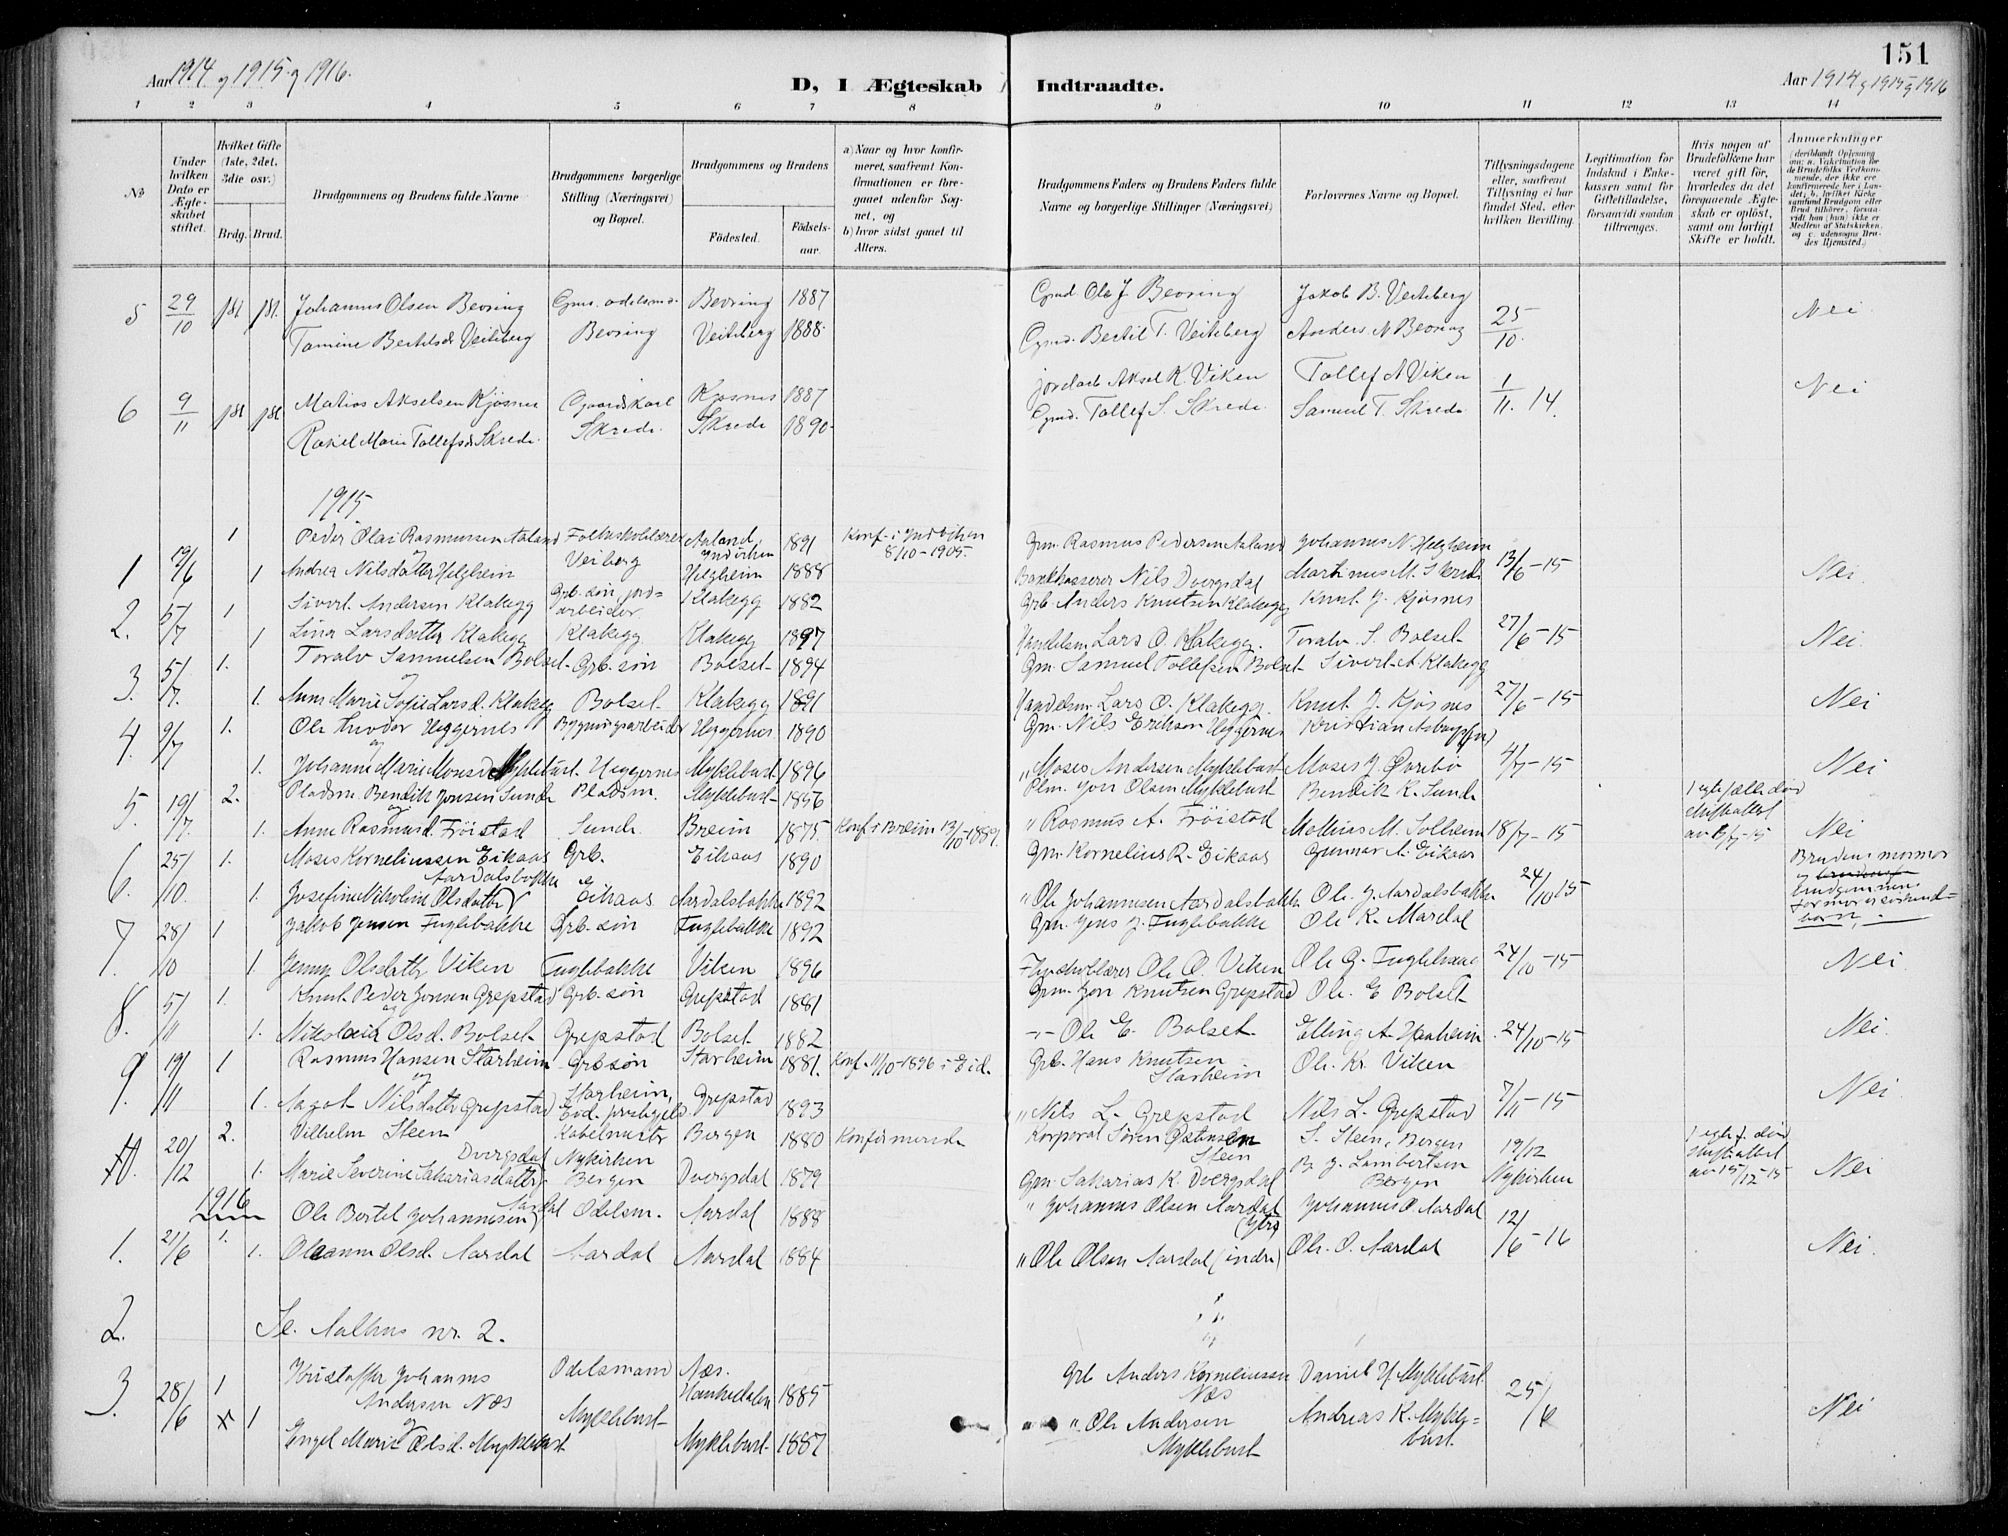 151
Aar 1914 og 1915 og 1916.
D, I Ægteskab Indtraadte.
Aar 1914 og 1915 og 1916
1 2 3 4 5 6 7 8 9 10 11 12 13 14
No
Under hvilken Dato er Ægteskabet stiftet.
Hvilket Gifte (1ste, 2det, 3die osv.)
Brdg. Brud.
Brudgommens og Brudens fulde Navne
Brudgommens borgerlige Stilling (Næringsvei) og Bopæl.
Brudgommens og Brudens
Fødested. Fødselsaar.
a) Naar og hvor konfirmeret, saafremt Konfirmationen er foregaaet udenfor Sognet, og
b) hvor sidst gaaet til Alters.
Brudgommens Faders og Brudens Faders fulde Navne og borgerlige Stillinger (Næringsvei)
Forlovernes Navne og Bopæl.
Tillysningsdagene eller, saafremt Tillysning ei har fundet Sted, efter hvilken Bevilling.
Legitimation for Indskud i Enkekassen samt for Giftetilladelse, forsaavidt saadan tiltrænges.
Hvis nogen af Brudefolkene har været gift før, hvorledes da det foregaaende Ægteskab er opløst, samt om lovligt Skifte er holdt.
Anmerkninger (deriblandt Oplysning om: a. Vakcination for de Brudefolks Vedkommende, der ikke ere konfirmerede her i Landet; b. hvilket Kirkesamfund Brudgom eller Brud tilhører, forsaavidt han (hun) ikke er Medlem af Statskirken, og c. udensogns Brudes Hjemsted.)
5 29/10 1st 1st. Johannes Olsen Bevring Gmd. odelsmd. Bevring 1887 Gmd. Ole J. Bevring Jakob B. Veiteberg 25/10. Nei.
Tomine Bertelsd. Veiteberg Bevring Veiteberg 1888. Gmd. Bertil T. Veiteberg Anders N Bevring
6 9/11 1st 1st Matias Akselsen Kjøsnes Gaardskarl Kjøsnes 1887 Aksel K. Viken Tollef A Viken 1/11. 14. Nei
Rakel Marie Tollefsd. Skrede. Skrede. Skrede 1890. Gmd. Tollef S. Skrede. Samuel T. Skrede.
1915
1 19/6 1 Peder Olai Rasmussen Aaland Folkeskolelærer Aaland, Indviken 1891 Konf. i Indviken 8/10-1905. Gm. Rasmus Pedersen Aaland Johannes N. Helgheim 13/6-15 Nei.
og
1 Andrea Nilsdatter Helgheim Veiberg Helgheim 1888 Bankkasserer Nils Dvergsdal Martinus M. Skrede
2. 5/7 1 Sivert Andersen Klakegg Grb. søn, jordarbeider Klakegg 1882 Grb. Anders Knutsen Klakegg Knut J. Kjøsnes
1 Lina Larsdatter Klakegg Klakegg. Klakegg 1897 Handelsm. Lars O. Klakegg. Toralv S. Bolset 27/6-15 Nei.
3. 5/7. 1. Toralv Samuelsen Bolset Grb. søn Bolset 1894 Gm. Samuel Tollefsen Bolset Sivert A. Klakegg
og
1. Anne Marie Sofie Larsd. Klakegg Bolset. Klakegg 1891 Handelsm. Lars O. Klakegg. Knut J. Kjøsnes 27/6-15 Nei
4. 9/7 1. Ole Teodor Heggernes Bygningsarbeider Heggernes 1890 Gm. Nils Eriksen Heggernes Kristian
og
1. Johanne Marie Mosesd. Myklebust. Heggernes Myklebust 1896 " Moses Andersen Myklebust Moses J. Øvrebø 4/7-15 Nei
5. 19/7. 2. Pladsm. Bendik Jonsen Sunde Pladsm. Myklebust 1856 Plm. Jon Olsen Myklebust Bendik K. Sunde
og
1. Anne Rasmusd. Frøistad Sunde. Breim 1875. Konf. i Breim 13/10-1889. " Rasmus A. Frøistad Mathias M. Solheim 18/7-15 1 egtefælle død skifteattest av /7-15 Nei
6. 25/10. 1. Moses Korneliussen Eikaas Grb. Eikaas 1890 Gm. Kornelius R. Eikaas Gunnar A. Eikaas Brudens mormor og brudgommens farmor er søskendebarn.
1. Josefine Nikoline Olsdatter Aardalsbakke Eikaas Aardalsbakke 1892 " Ole Johannessen Aardalsbakke Ole J. Aardalsbakke 24/10 15
7. 28/10 1 Jakob Jensen Fuglebakke Grb. søn Fuglebakke 1892 Gm. Jens J. Fuglebakke Ole K. Aardal
1. Jenny Olsdatter Viken Fuglebakke Viken 1896 Ole O. Viken Ole G. 24/10-15 Nei.
8. 5/11 1. Knut Peder Jonsen Grepstad Grb. søn Grepstad 1881 Gm. Jon Knutsen Grepstad Ole E Bolset
og
1. Nikolina Olsd. Bolset Grepstad Bolset 1882 -"- Ole E. Bolset Elling A. 24/10-15 Nei.
9. 19/11 1 Rasmus Hansen Starheim Grb. søn Starheim 1881. Konf. 11/10-1896 i Eid. Grb. Hans Knutsen Starheim Ole Kr. Viken
og
1. Magot Nilsdatter Grepstad Starheim, Eid prestegjeld Grepstad 1893 " Nils L. Grepstad Nils L. Grepstad 7/11-15 Nei.
10. 20/12 2. Vilhelm Steen Kabelmester Bergen 1880 Konfirmerede Korporal Søren Østensen Steen S. Steen, Bergen 19/12 1 egtef. død skifteattest av 15/12-15
1. Marie Severine Sakariasdatter Dvergsdal Nykirken Bergen Dvergsdal 1879 Gm. Sakarias K. Dvergsdal B. J. Lambertsen Bergen Nykirken Nei
1916
1. 21/6 1. Ole Bertel Johannessen Aardal Odelsm. Aardal 1888 " Johannes Olsen Aardal (ytre) Johannes O. Aardal 12/6-16
1. Oleanna Olsd. Aardal Aardal Aardal 1884 " Ole Olsen Aardal (indre) Ole O. Aardal Nei.
2. Se Aalhus nr. 2.
3. 28/6 1 Kristoffer Johannes Andersen Næs Odelsmand Næs. Haukedalen 1885 Grb Anders Korneliussen Næs Daniel H Myklebust. 25/6 Nei
og
x 1 Engel Marie Olsd. Myklebust Myklebust Myklebust. 1887 " Ole Andersen Myklebust Andreas K. Myklebust.